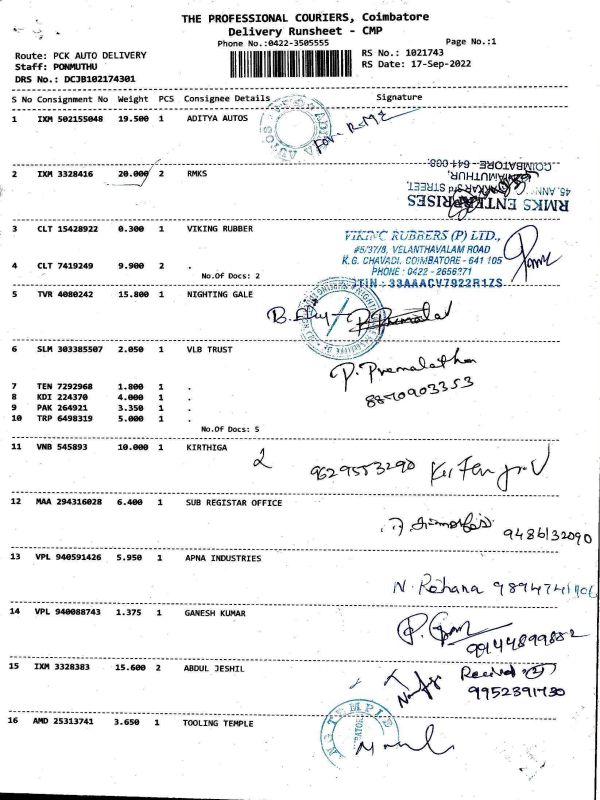 THE PROFESSIONAL COURIERS, Coimbatore
Delivery Runsheet - CMP
Phone No.:0422-3505555 Page No.:1
Route: PCK AUTO DELIVERY RS No.: 1021743
Staff: PONMUTHU RS Date: 17-Sep-2022
DRS No.: DCJB102174301
S No Consignment No Weight PCS Consignee Details Signature
1 IXM 502155048 19.500 1 ADITYA AUTOS
For
2 IXM 3328416 20.000 2 RMKS
RMKS ENTERPRISES
COIMBATORE - 641 008.
3 CLT 15428922 0.300 1 VIKING RUBBER
VIKING RUBBERS (P) LTD.,
#5/37/8, VELANTHAVALAM ROAD
K.G. CHAVADI, COIMBATORE - 641 105
PHONE : 0422 - 2656371
GTIN : 33AAACV7922R1ZS
4 CLT 7419249 9.900 2 .
No.Of Docs: 2
5 TVR 4080242 15.800 1 NIGHTING GALE
6 SLM 303385507 2.050 1 VLB TRUST
P. Premalatha
8870903353
7 TEN 7292968 1.800 1 .
8 KDI 224370 4.000 1 .
9 PAK 264921 3.350 1 .
10 TRP 6498319 5.000 1 .
No.Of Docs: 5
11 VNB 545893 10.000 1 KIRTHIGA
2 9629553290
12 MAA 294316028 6.400 1 SUB REGISTAR OFFICE
9486132090
13 VPL 940591426 5.950 1 APNA INDUSTRIES
N. Rohana
14 VPL 940088743 1.375 1 GANESH KUMAR
15 IXM 3328383 15.600 2 ABDUL JESHIL
Received (2)
16 AMD 25313741 3.650 1 TOOLING TEMPLE